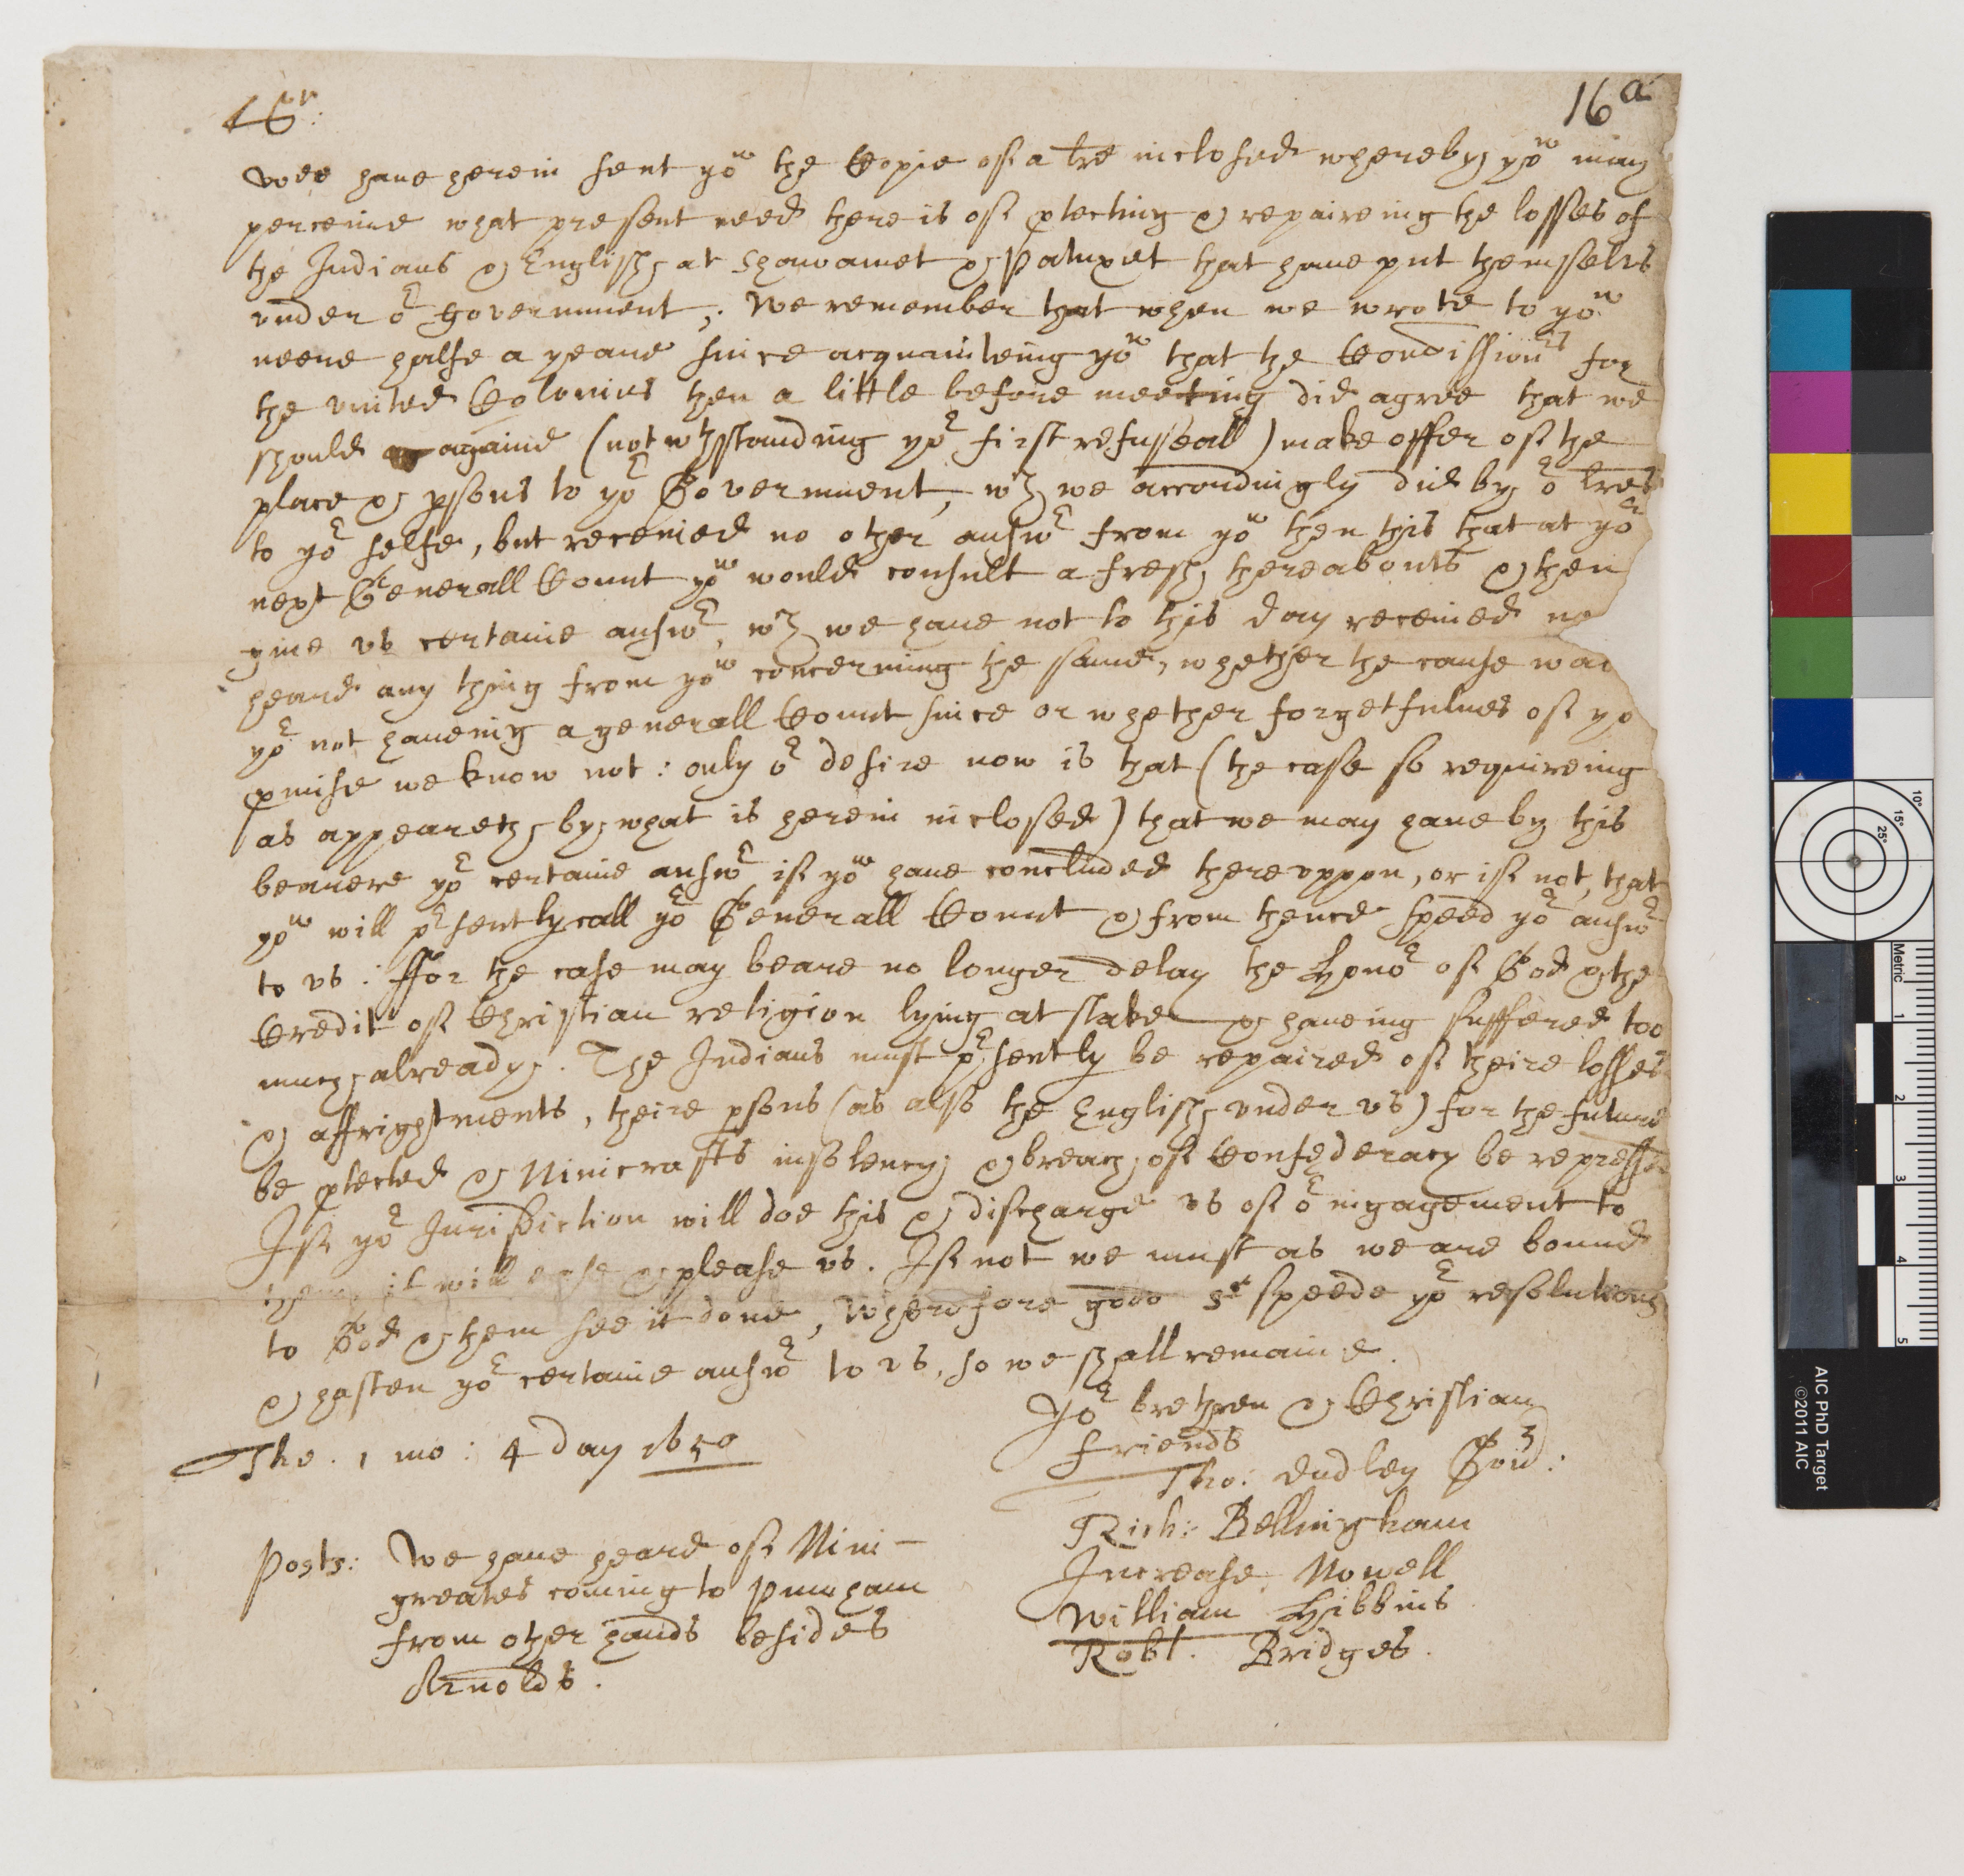 16ᵃ
Sʳ:
Wee haue herein sent yoʷ the Copie of a lr̃e inclosed whereby yoʷ may
perceiue what present need there is of ꝑtecting & repaireing the losses of
the Indians & English at Shawamet & Patuxet that haue put themselues
vnder oʳ Gouernment; We remember that when we wrote to yoʷ
neere halfe a yeare since acquainteing yoʷ that the Com̃issionʳˢ for
the vnited Colonies then a little before meeting did agree that we
should againe (notwᵗʰstanding yoʳ first refuseall) make offer of the
place & ꝑsons to yoʳ Gouernment, wᶜʰ we accordingly did by oʳ lr̃es
to yoʳ selfe, but receiued no other answʳ from yoʷ then this that at yoʳ
next Generall Court yoʷ would consult afresh thereabouts & then
giue vs certaine answʳ, wᶜʰ we haue not to this day receiued
heard any thing from yoʷ concerning the same, whether the cause was
yoʳ not haueing a generall Court since or whether forgetfulnes of yo
ꝑmise we know not: only oʳ desire now is that (the case so requireing
as appeareth by what is herein inclosed) that we may haue by this
bearere yoʳ certaine answʳ if yoʷ haue concluded therevppon, or if not, that
yoʷ will pʳsently call yoʳ Generall Court & from thence speed yoʳ answʳ
to vs: ffor the case may beare no longer delay the Honoʳ of God & the
Credit of Christian religion lying at stake & haueing suffered too
much already. The Indians must pʳsently be repaired of theire losses
& affrightments, theire ꝑsons (as also the English vnder vs) for the future
be ꝑtected & Ninicrafts insolency & breach of Confederacy be represse
If yoʳ Jurisdiction will doe this & discharge vs of oʳ ingagement to
them it will ease & please vs. If not we must as we are bound
to God & them see it done, Wherefore good Sʳ speede yoʳ resolutions
& hasten yoʳ certaine answʳ to vs, so we shall remaine.
Yoʳ brethren & Christian
friends
The. 1 mo: 4 day 1650
Tho: Dudley Goũ:
Rich: Bellingham
Increase Nowell
William Hibbins
Robt. Bridges.
Posts: We haue heard of Nini-
greates coming to Pumham
from other hands besides
Arnolds.
AIC PhD Target
©2011 AIC
Metric
1
2
3
4
5
10°
15°
25°